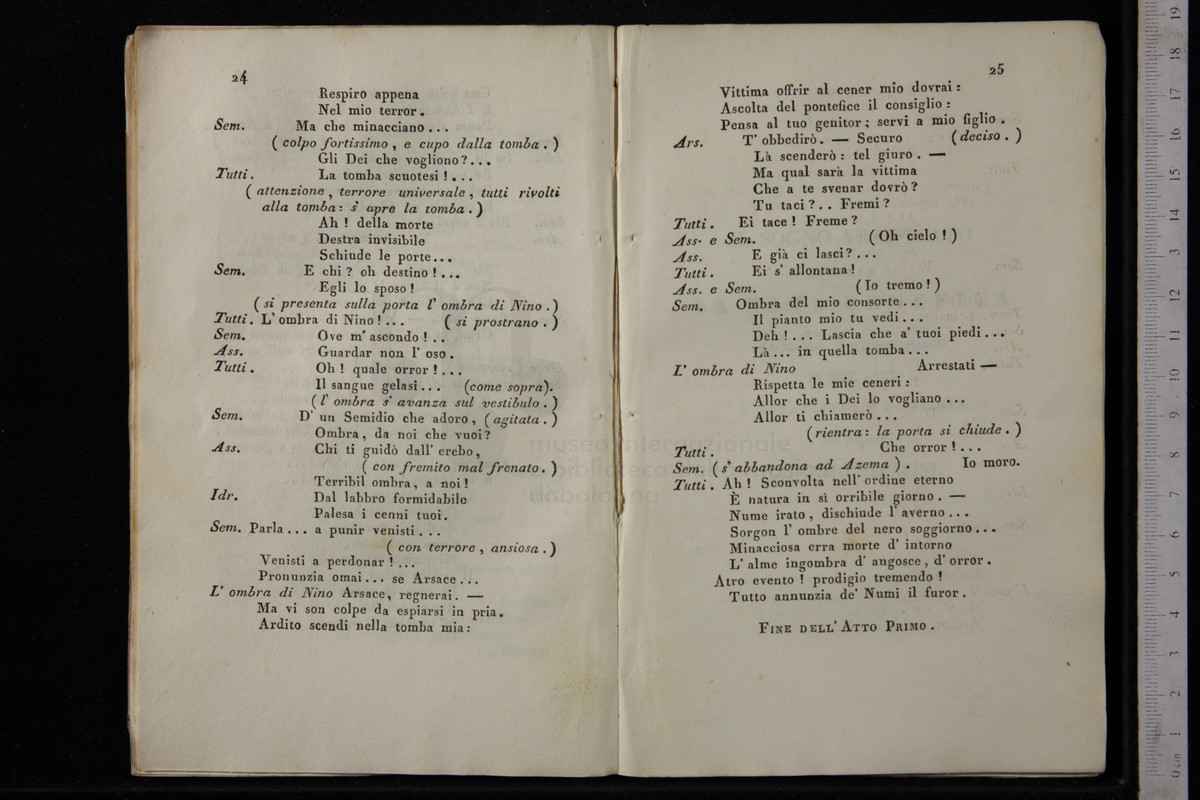 24
Respiro appena
Nel mio terror.
Sem. Ma che minacciano...
( colpo fortissimo, e cupo dalla tomba. )
Gli Dei che vogliono?...
Tutti. La tomba scuotesi!...
( attenzione, terrore universale, tutti rivolti
alla tomba: s' apre la tomba. )
Ah! della morte
Destra invisibile
Schiude le porte...
Sem. E chi? oh destino!...
Egli lo sposo!
( si presenta sulla porta l' ombra di Nino. )
Tutti. L' ombra di Nino!... ( si prostrano. )
Sem. Ove m' ascondo!..
Ass. Guardar non l' oso.
Tutti. Oh! quale orror!...
Il sangue gelasi... (come sopra).
( l' ombra s' avanza sul vestibulo. )
Sem. D' un Semidio che adoro, ( agitata. )
Ombra, da noi che vuoi?
Ass. Chi ti guidò dall' erebo,
( con fremito mal frenato. )
Terribil ombra, a noi!
Idr. Dal labbro formidabile
Palesa i cenni tuoi.
Sem. Parla... a punir venisti...
( con terrore, ansiosa. )
Venisti a perdonar!...
Pronunzia omai... se Arsace...
L' ombra di Nino Arsace, regnerai. —
Ma vi son colpe da espiarsi in pria.
Ardito scendi nella tomba mia:
25
Vittima offrir al cener mio dovrai:
Ascolta del pontefice il consiglio:
Pensa al tuo genitor; servi a mio figlio.
Ars. T' obbedirò. — Securo ( deciso. )
Là scenderò: tel giuro. —
Ma qual sarà la vittima
Che a te svenar dovrò?
Tu taci?.. Fremi?
Tutti. Ei tace! Freme?
Ass. e Sem. ( Oh cielo! )
Ass. E già ci lasci?...
Tutti. Ei s' allontana!
Ass. e Sem. ( Io tremo! )
Sem. Ombra del mio consorte...
Il pianto mio tu vedi...
Deh!... Lascia che a' tuoi piedi...
Là... in quella tomba...
L' ombra di Nino Arrestati —
Rispetta le mie ceneri:
Allor che i Dei lo vogliano...
Allor ti chiamerò...
( rientra: la porta si chiude. )
Tutti. Che orror!...
Sem. ( s' abbandona ad Azema ). Io moro.
Tutti. Ah! Sconvolta nell' ordine eterno
È natura in sì orribile giorno. —
Nume irato, dischiude l' averno...
Sorgon l' ombre del nero soggiorno...
Minacciosa erra morte d' intorno
L' alme ingombra d' angosce, d' orror.
Atro evento! prodigio tremendo!
Tutto annunzia de' Numi il furor.
FINE DELL' ATTO PRIMO.
museo internazionale
biblioteca
di bologna
0 cm 1 2 3 4 5 6 7 8 9 10 11 12 13 14 15 16 17 18 19